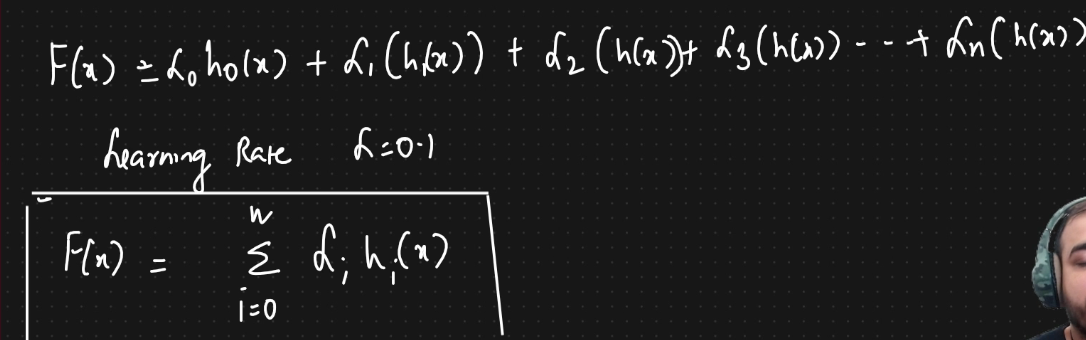 F(x) = α₀h₀(x) + α₁(h₁(x)) + α₂(h(x)) + α₃(h(x)) - - - + αn(h(x))
Learning Rate α=0.1
F(x) = n Σ i=0 αᵢ hᵢ(x)